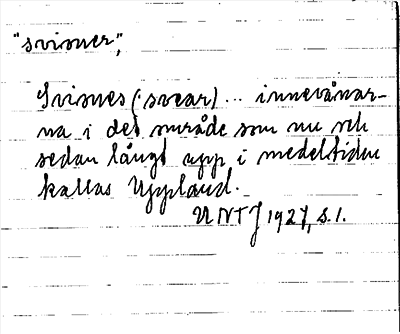 "svioner",
Sviones (: svear) ... innevånar-
na i det område som nu och
sedan långt upp i medeltiden
kallas Uppland.
UNTJ 1927, s. 1.